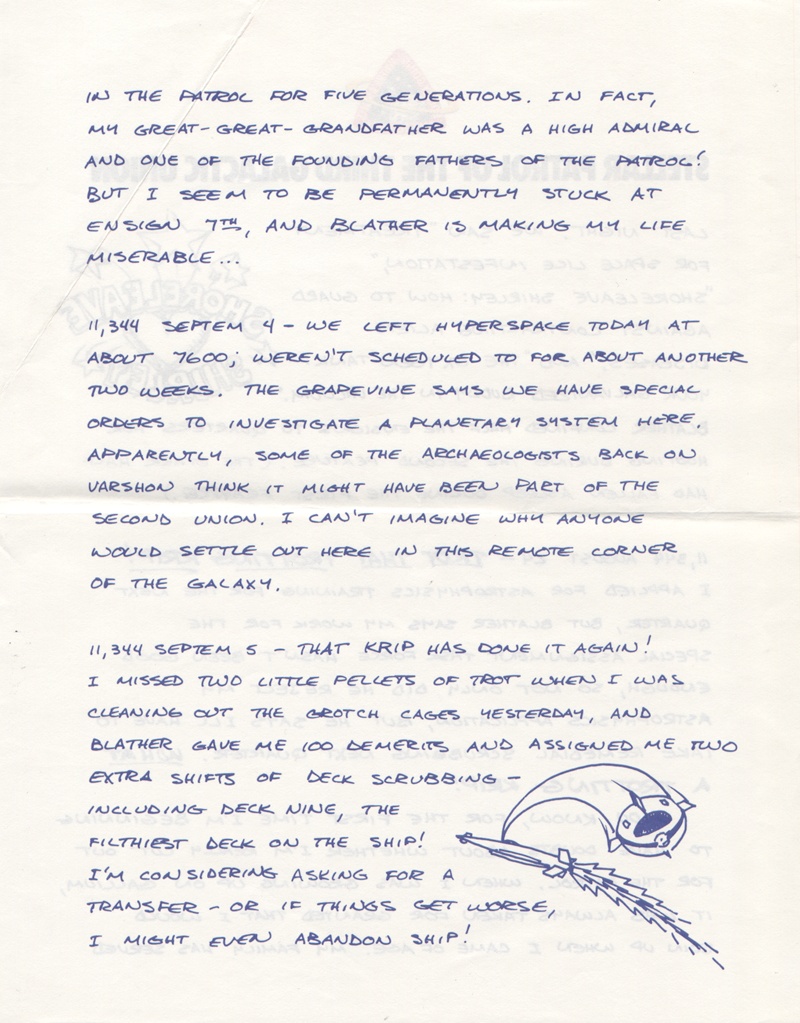 IN THE PATROL FOR FIVE GENERATIONS. IN FACT,
MY GREAT-GREAT-GRANDFATHER WAS A HIGH ADMIRAL
AND ONE OF THE FOUNDING FATHERS OF THE PATROL!
BUT I SEEM TO BE PERMANENTLY STUCK AT
ENSIGN 7TH, AND BLATHER IS MAKING MY LIFE
MISERABLE...
11,344 SEPTEM 4 - WE LEFT HYPERSPACE TODAY AT
ABOUT 7600; WEREN'T SCHEDULED TO FOR ABOUT ANOTHER
TWO WEEKS. THE GRAPEVINE SAYS WE HAVE SPECIAL
ORDERS TO INVESTIGATE A PLANETARY SYSTEM HERE.
APPARENTLY, SOME OF THE ARCHAEOLOGISTS BACK ON
VARSHON THINK IT MIGHT HAVE BEEN PART OF THE
SECOND UNION. I CAN'T IMAGINE WHY ANYONE
WOULD SETTLE OUT HERE IN THIS REMOTE CORNER
OF THE GALAXY.
11,344 SEPTEM 5 - THAT KRIP HAS DONE IT AGAIN!
I MISSED TWO LITTLE PELLETS OF TROT WHEN I WAS
CLEANING OUT THE GROTCH CAGES YESTERDAY, AND
BLATHER GAVE ME 100 DEMERITS AND ASSIGNED ME TWO
EXTRA SHIFTS OF DECK SCRUBBING -
INCLUDING DECK NINE, THE
FILTHIEST DECK ON THE SHIP!
I'M CONSIDERING ASKING FOR A
TRANSFER - OR IF THINGS GET WORSE,
I MIGHT EVEN ABANDON SHIP!